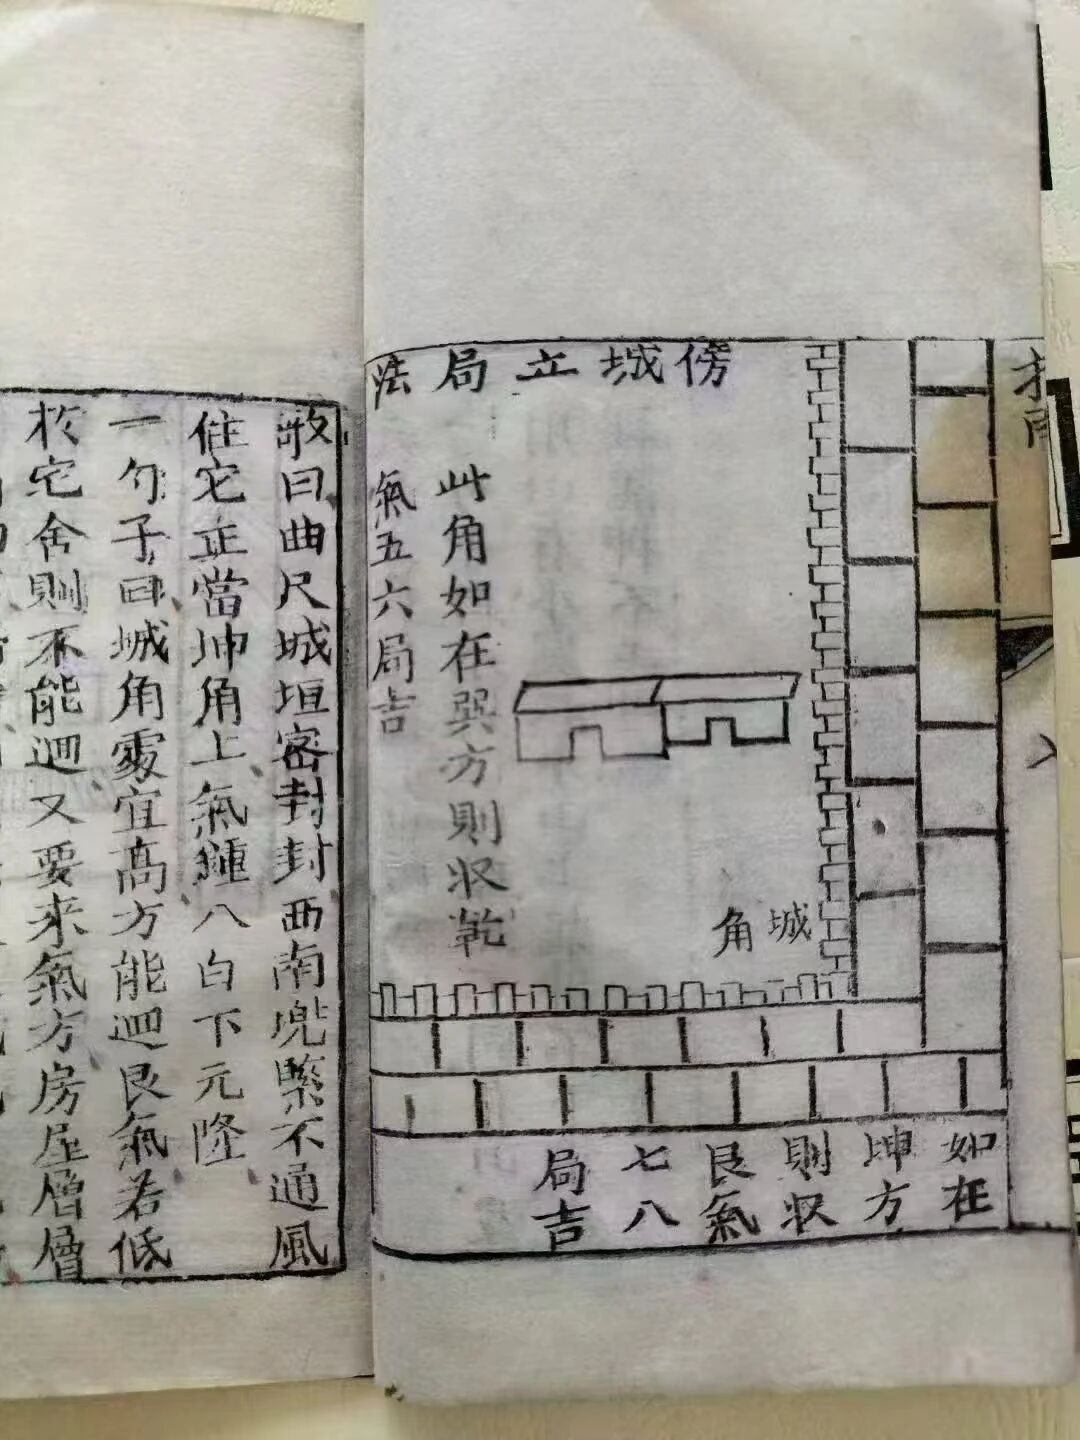 傍城立局法
此角如在巽方則收乾
氣五六局吉
城角
如在
坤方
則收
艮氣
七八
局吉
敬曰曲尺城垣密封封西南兜緊不通風
住宅正當坤角上氣鍾八白下元隆
一勾子曰城角處宜高方能迴艮氣若低
於宅舍則不能迴又要來氣方房屋層層